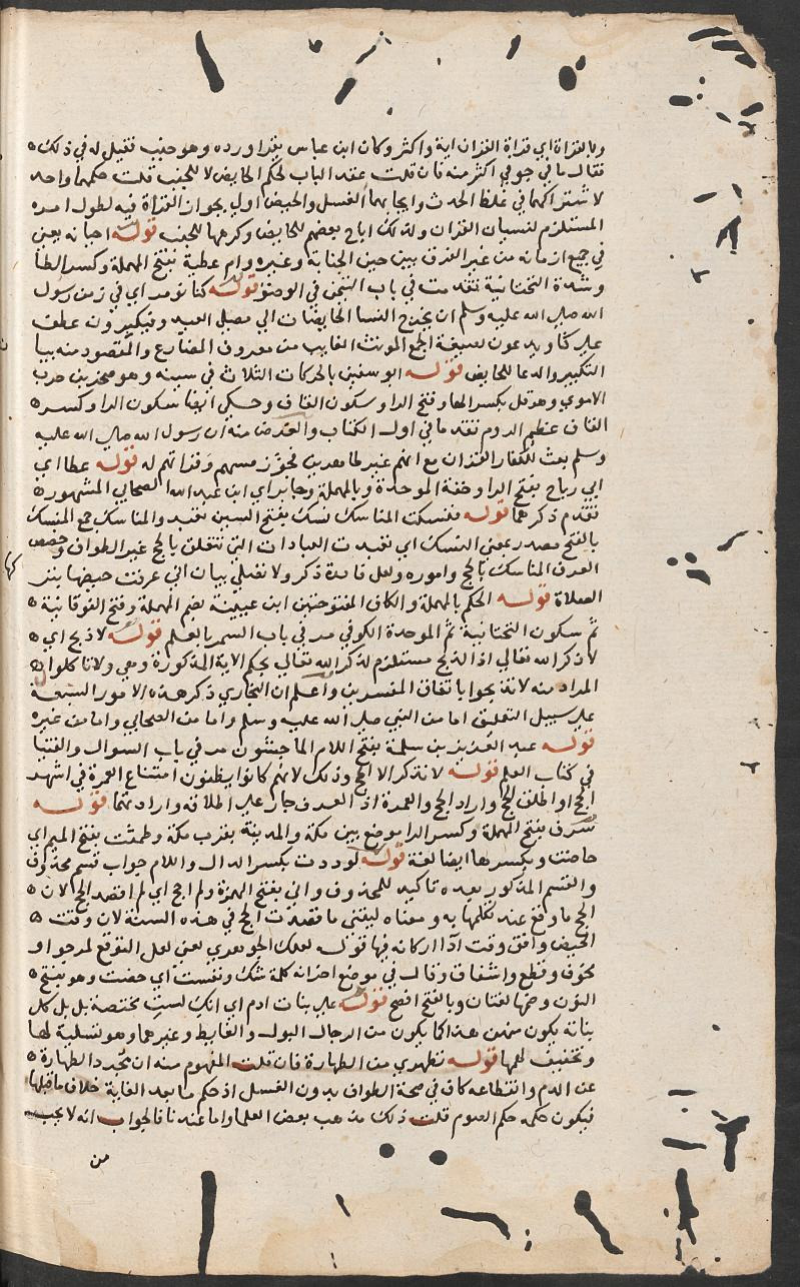 وبالقراة اي قراة القران اية واكثر وكان ابن عباس يقرا ورده وهو جنب فقيل له في ذلك
فقال ما في جوفي اكثر منه فان قلت عقد الباب لحكم الحايض لا للجنب قلت حكمهما واحد
لاشتراكهما في غلظ الحدث وايجابهما الغسل والحيض اولي بجواز القراة فيه لطول امده
المستلزم لنسيان القران ولذلك اباح بعضهم للحايض وكرهها للجنب قوله احيانه يعني
في جميع ازمانه من غير الفرق بين حين الجنابة وغيره وام عطية بفتح المهملة وكسر الطا
وشدة التحتانية تقدمت في باب التيمن في الوضو قوله كنا نومر اي في زمن رسول
الله صلي الله عليه وسلم ان يخرج النسا الحايضات الي مصلي العيد وفيكبرون عطف
علي كنا ويدعون بصيغة الجمع المونث الغايب من معروف المضارع والمقصود منه بيا
التكبير والدعا للحايض قوله ابو سفين بالحركات الثلاث في سينه وهو صخر بن حرب
الاموي وهرقل بكسر الها وفتح الرا وسكون القاف وحكي ايضا سكون الرا وكسر
القاف عظيم الروم تقدما في اول الكتاب والغرض منه ان رسول الله صلي الله عليه
وسلم بعث للكفار القران مع انهم غير طاهرين فجوز مسهم وقراتهم له قوله عطا اي
ابي رباح بفتح الرا وخفة الموحدة وبالمهملة وجابر اي ابن عبد الله الصحابي المشهور
تقدم ذكرهما قوله فنسكت المناسك نسك بفتح السين تعبد والمناسك جمع المنسك
بالفتح مصدر بمعني النسك اي تعبدت العبادات التي تتعلق بالحج غير الطواف وخصص
العرف المناسك بالحج واموره ولعل فايدة ذكر ولا تصلي بيان اني عرفت حيضها بترك
الصلاة قوله الحكم بالمهملة والكاف المفتوحتين ابن عيينة بضم المهملة وفتح الفوقانية
ثم سكون التحتانية ثم الموحدة الكوفي مر في باب السمر بالعلم قوله لا ذبح اي
لا ذكر الله تعالي اذ الذبح مستلزم لذكر الله تعالي بحكم الاية المذكورة وهي ولا تاكلوا
المراد منه لا تذبحوا باتفاق المفسرين واعلم ان البخاري ذكر هذه الامور السبعة
علي سبيل التعليق اما من النبي صلي الله عليه وسلم واما من الصحابي واما من غيره
قوله عبد العزيز بن سلمة بفتح اللام الماجشون مر في باب السوال والفتيا
في كتاب العلم قوله لا نذكر الا الحج وذلك لانهم كانوا يظنون امتناع العمرة في اشهر
الحج او اطلق الحج واراد الحج والعمرة اذ العرف جار علي اطلاقه وارادتهما قوله
سرف بفتح المهملة وكسر الرا موضع بين مكة والمدينة بقرب مكة وطمثت بفتح الميم اي
حاضت وبكسرها ايضا لغة قوله لوددت بكسر الدال واللام جواب قسم محذوف
والقسم المذكور بعده تاكيد للمحذوف واني بفتح الهمزة ولم احج اي لم اقصد الحج لان
الحج ما وقع عند تكلمها به ومعناه ليتني ما قصدت الحج في هذه السنة لان وقت
الحيض وافق وقت ادا اركانه فيها قوله لعلك الجوهري لعني لعل التوقع لمرجو او
مخوف وطمع واشفاق وقال في موضع اخر انه كلمة شك ونفست اي حضت وهو بفتح
النون وضمها لغتان وبالفتح افصح قوله علي بنات ادم اي انك لست مختصة بل بل كل
بناته يكون منهن هذا كما يكون من الرجال البول والغايط وغيرهما وهو تسلية لها
وتخفيف لهمها قوله تطهري من الطهارة فان قلت المفهوم منه ان مجرد الطهارة
عن الدم وانقطاعه كاف في صحة الطواف بدون الغسل اذ حكم ما بعد الغاية خلاف ما قبلها
فيكون حكمه حكم الصوم قلت ذلك مذهب بعض العلما واما عندنا فالجواب انه لا يجب
من